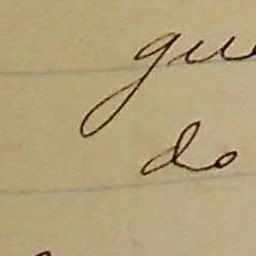 gu
do